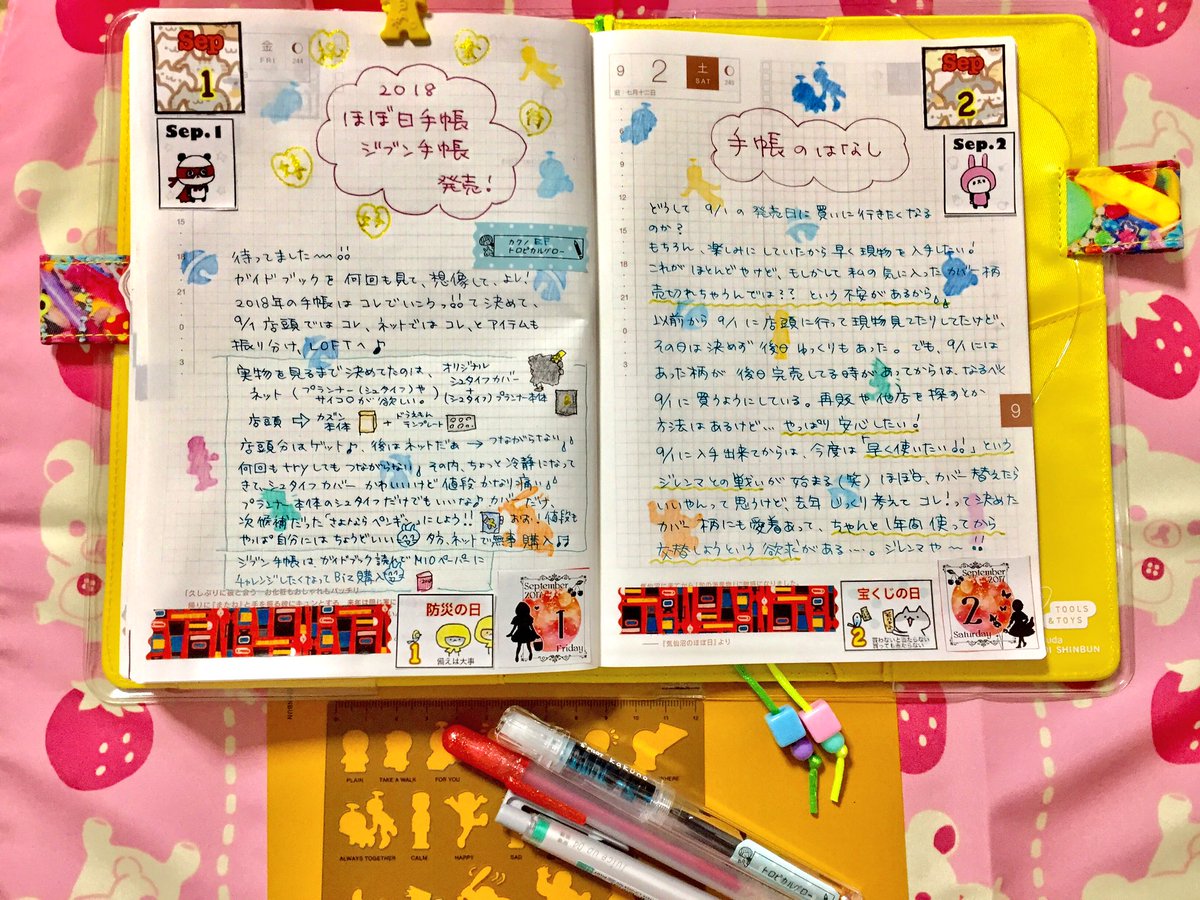 Sep
1
金
FRI
244
Sep.1
2018
ほぼ日手帳
ジブン手帳
発売!
カクノ EF
トロピカルハロー
待ってました〜!!
ガイドブックを何回も見て、想像して、よし!
2018年の手帳はコレでいこうっ!!て決めて、
9/1 店頭ではコレ、ネットではコレ、とアイテムも
振り分け、LOFTへ♪
実物を見るまで決めてたのは、
オリジナル
シュタイフカバー
+
(シュタイフ)プランナー本体
ネット(プランナー(シュタイフ)や
サイコロが欲しい。)
店頭 ⇨ カズン本体 + ドラえもんテンプレート
店頭分はゲット♪、後はネットだぁ→つながらない!!
何回もtryしてもつながらない!その内、ちょっと冷静になって
きて、シュタイフカバー かわいいけど値段かなり痛い!!
プランナー本体のシュタイフだけでもいいな♪カバーだけ、
次候補だった"さよならペンギン"にしよう!! おお!値段も
やっぱ自分にはちょうどいい 夕方、ネットで無事購入♪
ジブン手帳はガイドブック読んでMIOペーパーに
チャレンジしたくなってBiz購入
「久しぶりに彼と会う お化粧もおしゃれもバッチリ
防災の日
1
備えは大事
September
2017
1
Friday
9
2
土
SAT
245
旧 七月十二日
Sep
2
Sep.2
手帳のはなし
どうして 9/1の発売日に買いに行きたくなる
のか?
もちろん、楽しみにしていたから早く現物を入手したい!
これがほとんどやけど、もしかして私の気に入ったカバー柄
売切れちゃうんでは?? という不安があるから!!
以前から 9/1に店頭に行って現物見てたりしてたけど、
その日は決めず後日ゆっくりもあった。でも、9/1には
あった柄が後日完売してる時があってからは、なるべく
9/1に買うようにしている。再販や他店を探すとか
方法はあるけど… やっぱり安心したい!
9/1に入手出来てからは、今度は「早く使いたい!!」という
ジレンマとの戦いが始まる(笑) ほぼ日、カバー替えたら
いいやんって思うけど、去年じっくり考えてコレ!って決めた
カバー柄にも愛着あって、ちゃんと1年間使ってから
交替しようという欲求がある…。ジレンマや〜!!
9
『気仙沼のほぼ日』より
宝くじの日
2
買わないと当たらない
買っても当たらない
September
2017
2
Saturday
TOOLS
&TOYS
SHINBUN
PLAIN
TAKE A WALK
FOR YOU
ALWAYS TOGETHER
CALM
HAPPY
SAD
kakuno
トロピカルハロー